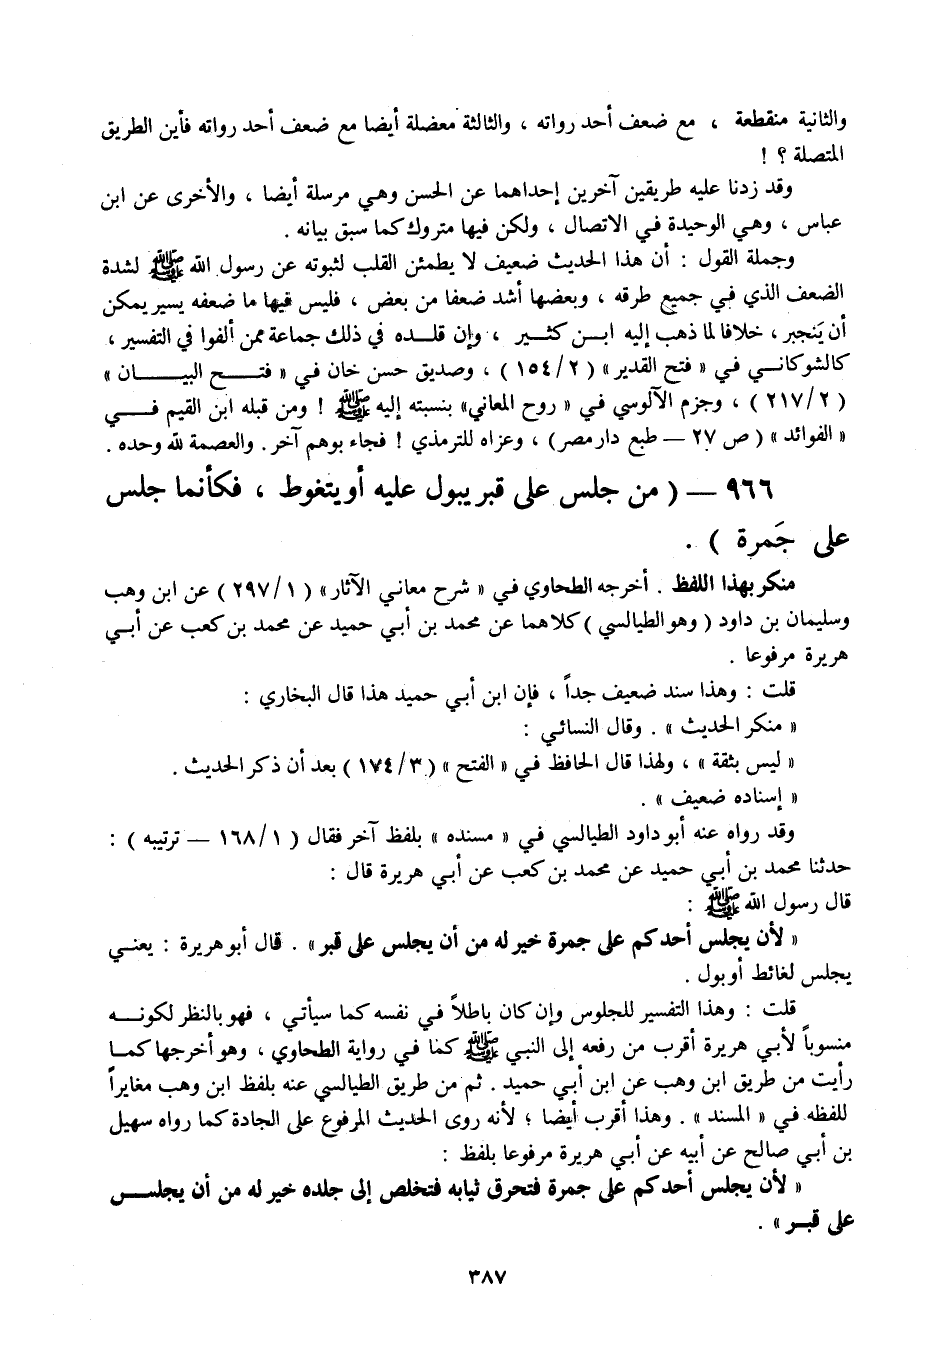 والثانية منقطعة ، مع ضعف أحد رواته ، والثالثة معضلة أيضا مع ضعف أحد رواته فأين الطريق
المتصلة ؟ !
وقد زدنا عليه طريقين آخرين إحداهما عن الحسن وهي مرسلة أيضا ، والأخرى عن ابن
عباس ، وهي الوحيدة في الاتصال ، ولكن فيها متروك كما سبق بيانه .
وجملة القول : أن هذا الحديث ضعيف لا يطمئن القلب لثبوته عن رسول الله ﷺ لشدة
الضعف الذي في جميع طرقه ، وبعضها أشد ضعفا من بعض ، فليس فيها ما ضعفه يسير يمكن
أن يَنجبر ، خلافا لما ذهب إليه ابن كثير ، وإن قلده في ذلك جماعة ممن ألفوا في التفسير ،
كالشوكاني في « فتح القدير » ( ٢/ ١٥٤ ) ، وصديق حسن خان في « فتح البيان »
( ٢/ ٢١٧ ) ، وجزم الآلوسي في « روح المعاني» بنسبته إليه ﷺ ! ومن قبله ابن القيم في
« الفوائد » ( ص ٢٧ — طبع دار مصر) ، وعزاه للترمذي ! فجاء بوهم آخر. والعصمة لله وحده .
٩٦٦ — ( من جلس على قبر يبول عليه أو يتغوط ، فكأنما جلس
على جَمرة ) .
منكر بهذا اللفظ . أخرجه الطحاوي في « شرح معاني الآثار» ( ١/ ٢٩٧ ) عن ابن وهب
وسليمان بن داود ( وهو الطيالسي ) كلاهما عن محمد بن أبي حميد عن محمد بن كعب عن أبي
هريرة مرفوعا .
قلت : وهذا سند ضعيف جداً ، فإن ابن أبي حميد هذا قال البخاري :
« منكر الحديث » . وقال النسائي :
« ليس بثقة » ، ولهذا قال الحافظ في « الفتح » ( ٣/ ١٧٤ ) بعد أن ذكر الحديث .
« إسناده ضعيف » .
وقد رواه عنه أبو داود الطيالسي في « مسنده » بلفظ آخر فقال ( ١/ ١٦٨ — ترتيبه ) :
حدثنا محمد بن أبي حميد عن محمد بن كعب عن أبي هريرة قال :
قال رسول الله ﷺ :
« لأن يجلس أحدكم على جمرة خير له من أن يجلس على قبر» . قال أبو هريرة : يعني
يجلس لغائط أو بول .
قلت : وهذا التفسير للجلوس وإن كان باطلاً في نفسه كما سيأتي ، فهو بالنظر لكونه
منسوباً لأبي هريرة أقرب من رفعه إلى النبي ﷺ كما في رواية الطحاوي ، وهو أخرجها كما
رأيت من طريق ابن وهب عن ابن أبي حميد . ثم من طريق الطيالسي عنه بلفظ ابن وهب مغايراً
للفظه في « المسند » . وهذا أقرب أيضا ؛ لأنه روى الحديث المرفوع على الجادة كما رواه سهيل
بن أبي صالح عن أبيه عن أبي هريرة مرفوعا بلفظ :
« لأن يجلس أحدكم على جمرة فتحرق ثيابه فتخلص إلى جلده خير له من أن يجلس
على قبر» .
٣٨٧